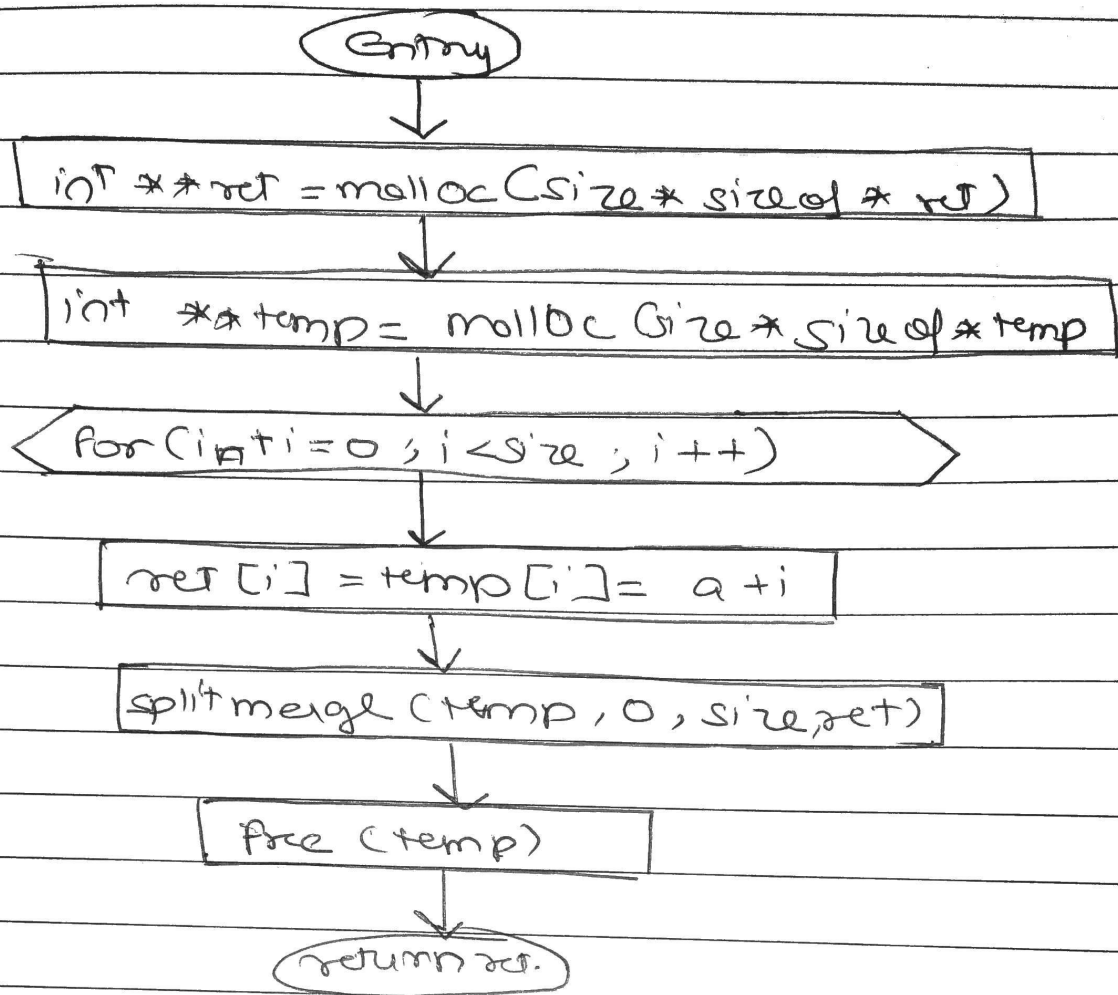 Entry
int **ret = malloc (size * sizeof * ret)
int **temp = malloc (size * sizeof * temp
for (int i = 0 ; i < size ; i++)
ret [i] = temp [i] = a + i
splitmerge (temp, 0, size, ret)
free (temp)
return ret.